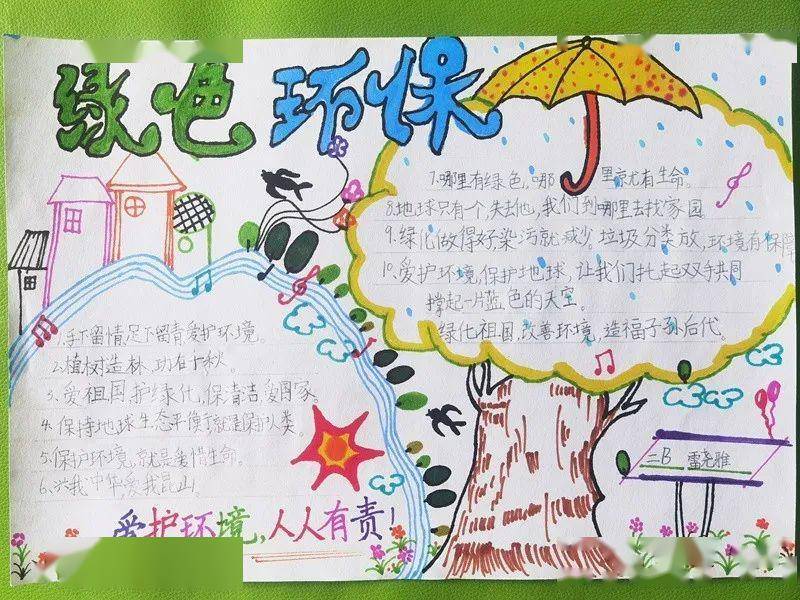 绿色环保
1.手下留情足下留青爱护环境。
2.植树造林,功在千秋。
3.爱祖国,护绿化,保清洁,爱国家。
4.保持地球生态平衡就是保护人类。
5.保护环境,就是爱惜生命。
6.兴我中华,爱我昆山。
爱护环境,人人有责!
7.哪里有绿色,哪里就有生命。
8.地球只有一个,失去他,我们到哪里去找家园
9.绿化做得好,染污就减少。垃圾分类放,环境有保障
10.爱护环境,保护地球,让我们托起双手共同
撑起一片蓝色的天空。
绿化祖国,改善环境,造福子孙后代。
二B 雷尧雅